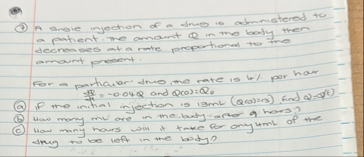 ⑦ A single injection of a drug is administered to
a patient. The amount Q in the body then
decreases at a rate proportional to the
amount present.
For a particular drug the rate is 4% per hour
dQ/dt = -0.04Q and Q(0)=Q₀
ⓐ If the initial injection is 15ml (Q(0)=15) find Q=Q(t)
ⓑ How many ml are in the body after 9 hours?
ⓒ How many hours will it take for only 4ml of the
drug to be left in the body?